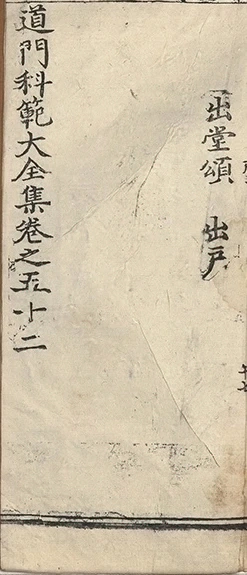 出堂頌 出戶
道門科範大全集卷之五十二